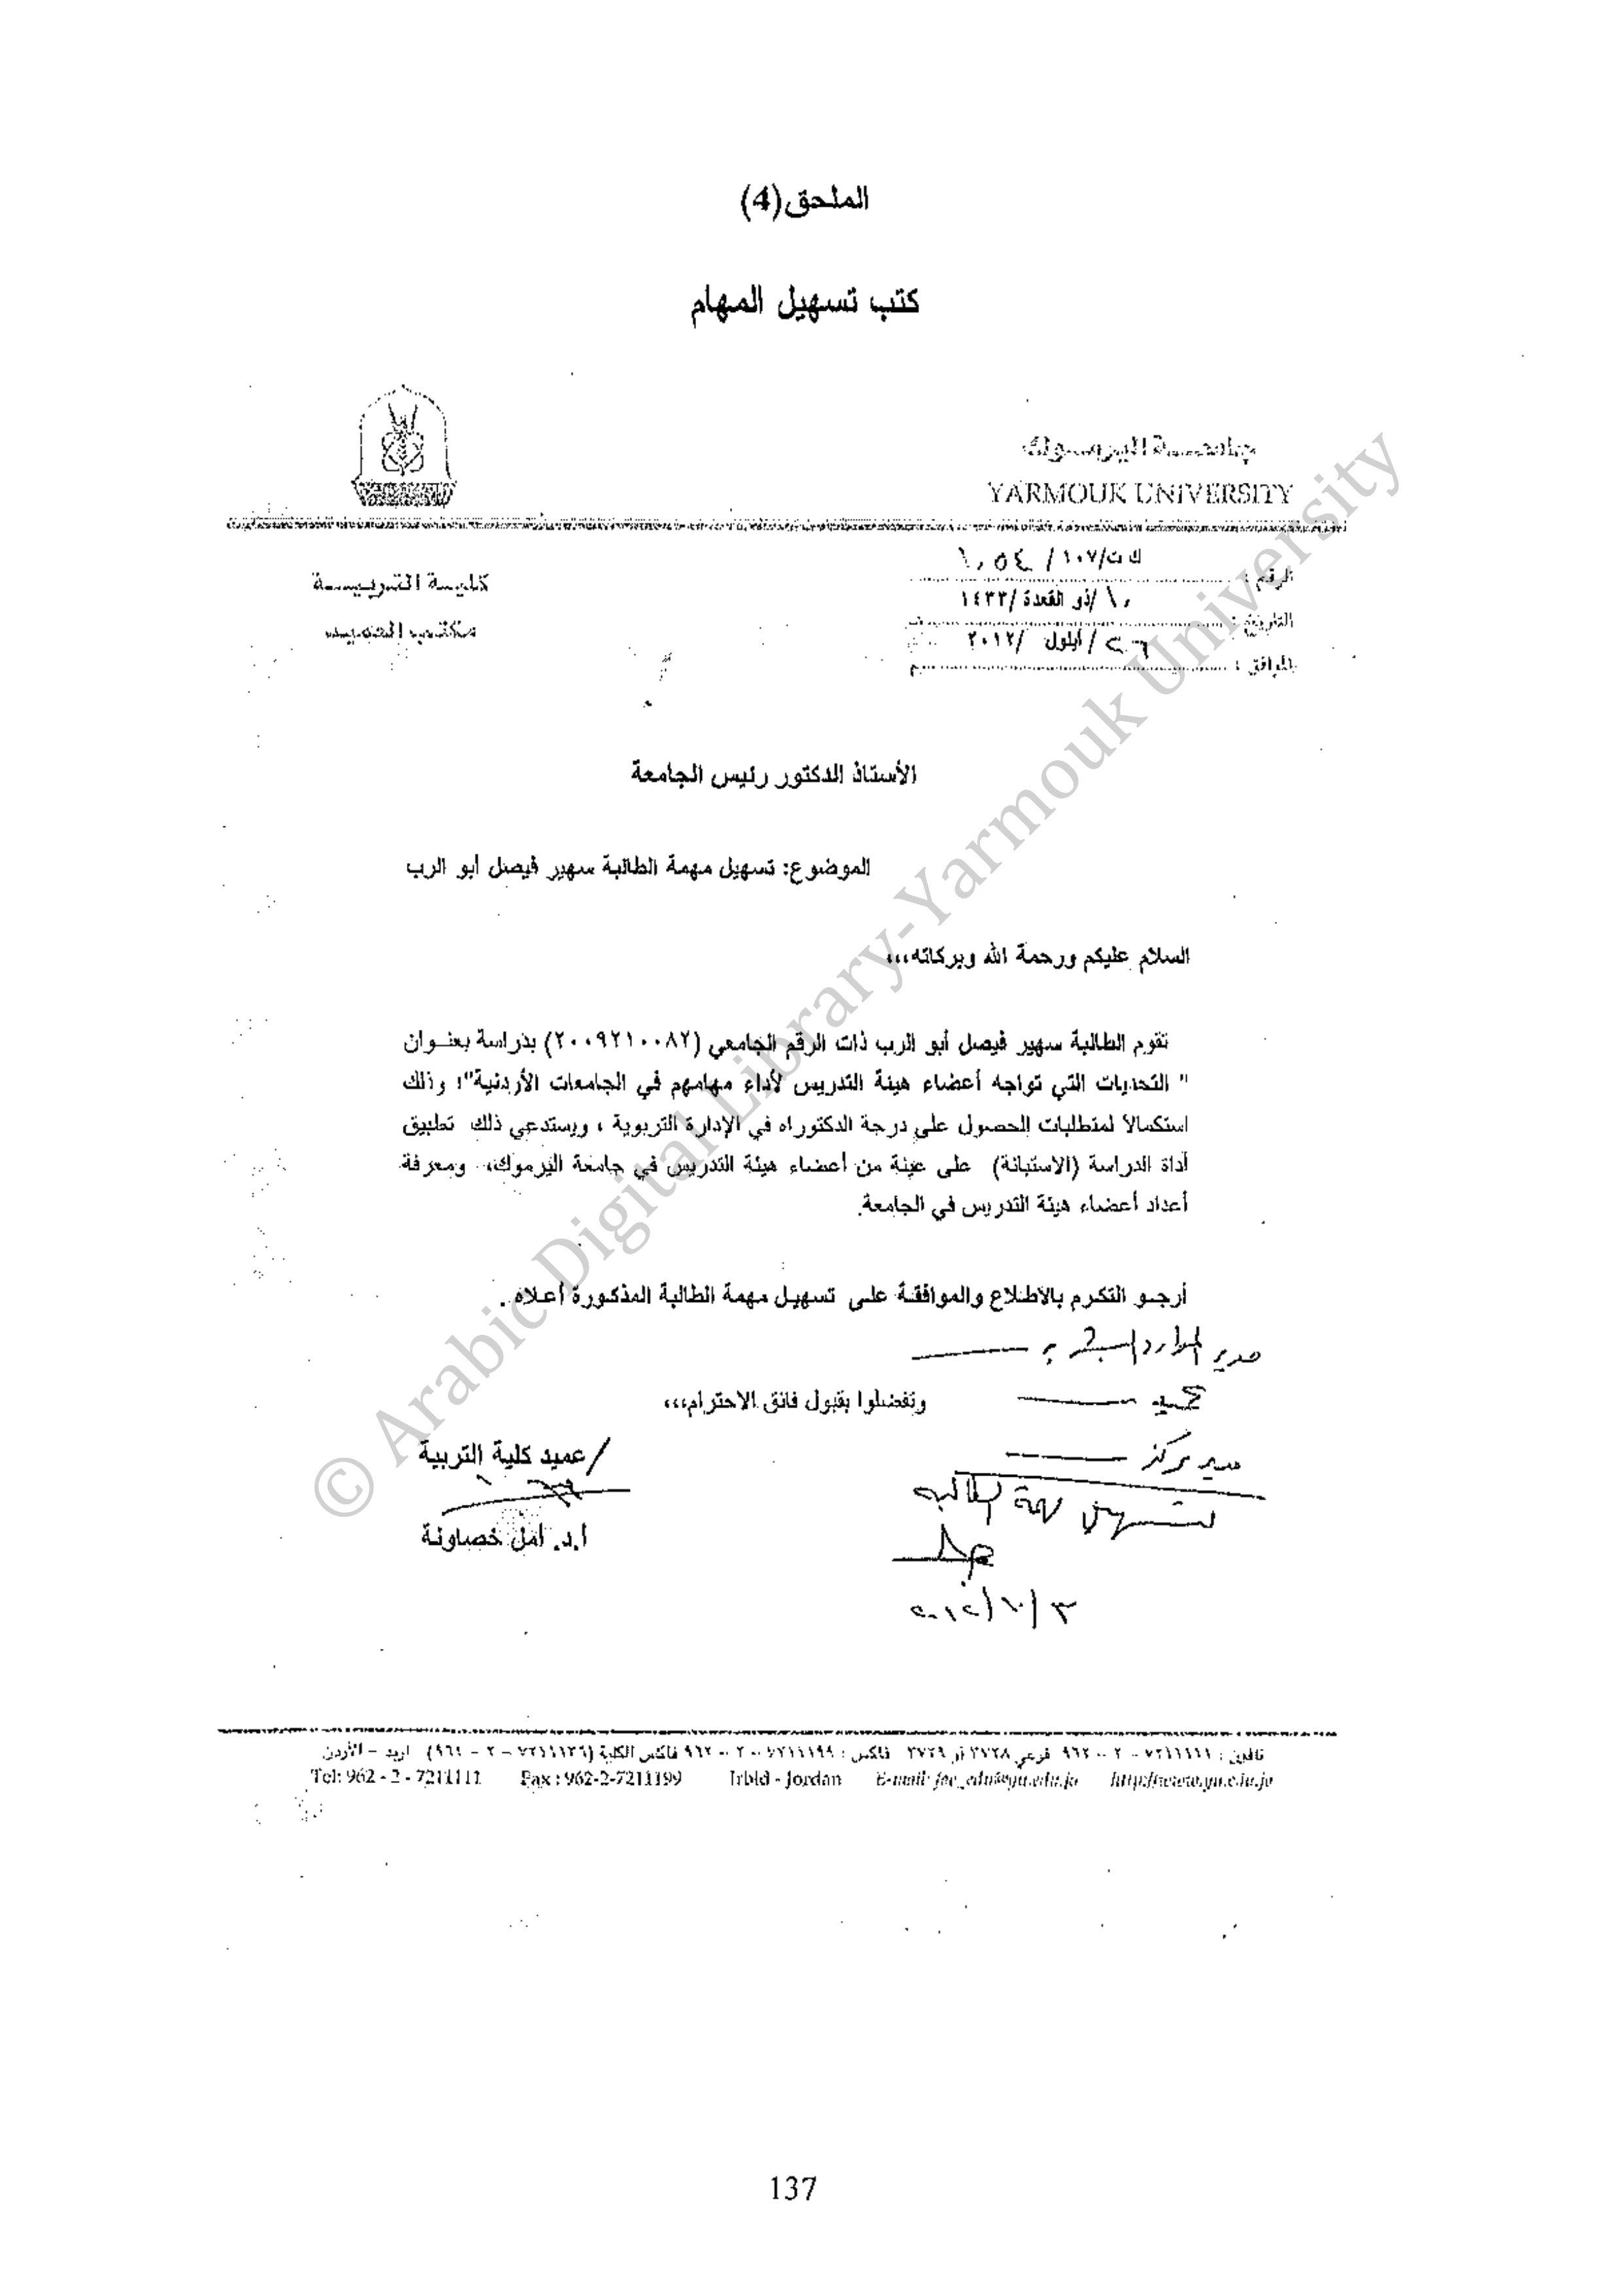 الملحق(4)
كتب تسهيل المهام
جامعة اليرموك
YARMOUK UNIVERSITY
كلية التربية
مكتب العميد
الرقم : ك ت/١٠٧/ ١٠٥٤
التاريخ : ١٠/ذو القعدة /١٤٣٣
الموافق : ٢٦/ أيلول /٢٠١٢ م
الأستاذ الدكتور رئيس الجامعة
الموضوع: تسهيل مهمة الطالبة سهير فيصل أبو الرب
السلام عليكم ورحمة الله وبركاته،،،
تقوم الطالبة سهير فيصل أبو الرب ذات الرقم الجامعي (٢٠٠٩٢١٠٠٨٢) بدراسة بعنوان
" التحديات التي تواجه أعضاء هيئة التدريس لأداء مهامهم في الجامعات الأردنية"؛ وذلك
استكمالا لمتطلبات الحصول على درجة الدكتوراه في الإدارة التربوية ، ويستدعي ذلك تطبيق
أداة الدراسة (الاستبانة) على عينة من أعضاء هيئة التدريس في جامعة اليرموك، ومعرفة
أعداد أعضاء هيئة التدريس في الجامعة.
أرجو التكرم بالاطلاع والموافقة على تسهيل مهمة الطالبة المذكورة أعلاه .
مدير الموارد البشرية
عميد
وتفضلوا بقبول فائق الاحترام،،،
مدير مركز
/عميد كلية التربية
لتسهيل مهمة الطالبة
أ.د. أمل خصاونة
٢٠١٢/١٠/٣
تلفون : ٧٢١١١١١ – ٢ – ٩٦٢ فرعي ٣٧٢٨ أو ٣٧٢٩ فاكس : ٧٢١١١٩٩ – ٢ – ٩٦٢ فاكس الكلية اربد – الأردن
Tel: 962 - 2 - 7211111 Fax : 962-2-7211199 Irbid - Jordan E-mail: fac_edu@yu.edu.jo http://www.yu.edu.jo
137
© Arabic Digital Library-Yarmouk University